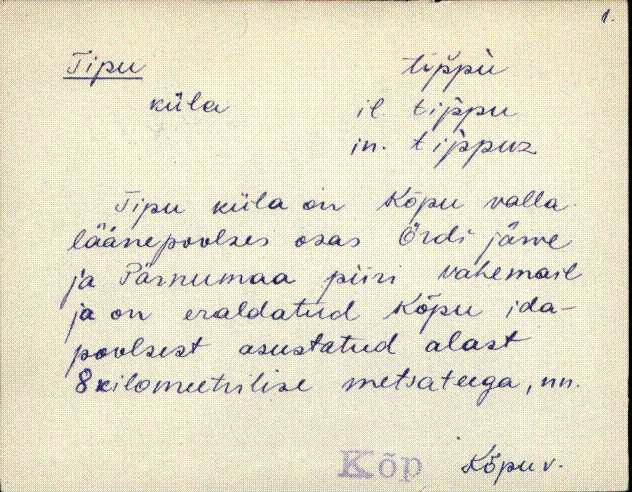 1.
Tipu tip̀pù
küla il. tip̀pu
in. tip̀puz
Tipu küla on Kõpu valla
läänepoolses osas Õrdi järve
ja Pärnumaa piiri vahemail
ja on eraldatud Kõpu ida-
poolsest asustatud alast
8 kilomeetrilise metsateega, nn.
Kõp Kõpu v.